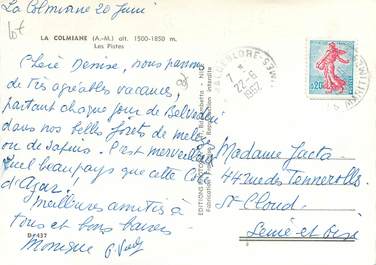 La Colmiane 20 Juin
LA COLMIANE (A.-M.) alt. 1500-1850 m.
Les Pistes
Chère Denise, nous passons
de très agréables vacances,
partant chaque jour de Belvédère
dans nos belles forêts de mélèzes
ou de sapins. C'est merveilleux
quel beau pays que cette Côte
d'Azur!
Meilleures amitiés à
tous et bons baisers
Monique
EDITIONS
NICE
Reproduction interdite
7
22-6
1962
0,20
Madame Jacta
44 rue des Tennerolles
St Cloud
Seine et Oise